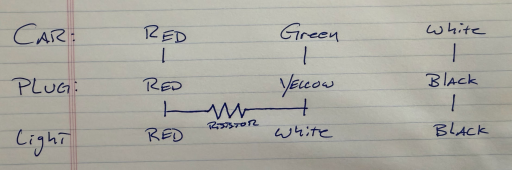 CAR: RED Green White
PLUG: RED YELLOW BLACK
RESISTOR
Light RED White BLACK